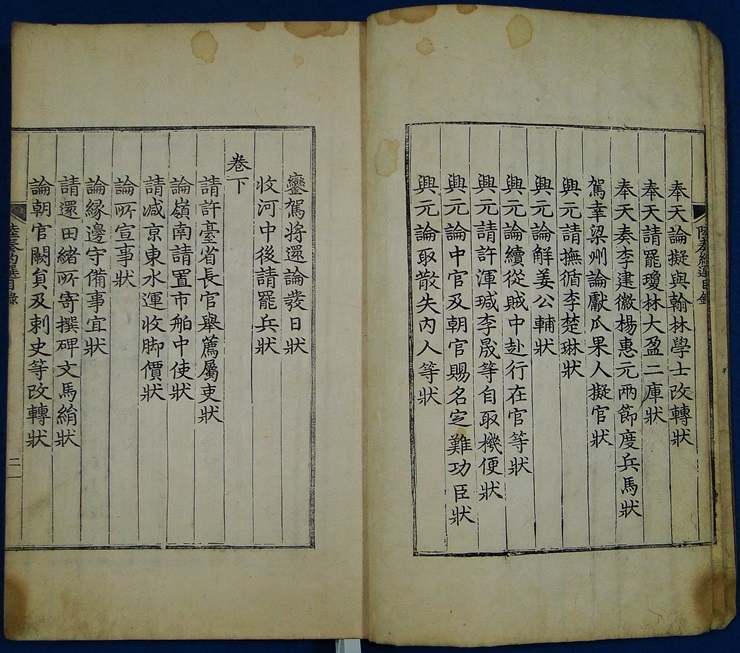 奉天論擬與翰林學士改轉狀
奉天請罷瓊林大盈二庫狀
奉天奏李建徽楊惠元兩節度兵馬狀
駕幸梁州論獻瓜果人擬官狀
興元請撫循李楚琳狀
興元論解姜公輔狀
興元論續從賊中赴行在官等狀
興元請許渾瑊李晟等自取機便狀
興元論中官及朝官賜名定難功臣狀
興元論取散失內人等狀
鑾駕將還論發日狀
收河中後請罷兵狀
卷下
請許臺省長官舉薦屬吏狀
論嶺南請置市舶中使狀
請減京東水運收脚價狀
論所宣事狀
論緣邊守備事宜狀
請還田緒所寄撰碑文馬絹狀
論朝官闕負及刺史等改轉狀
陸奏約選目錄